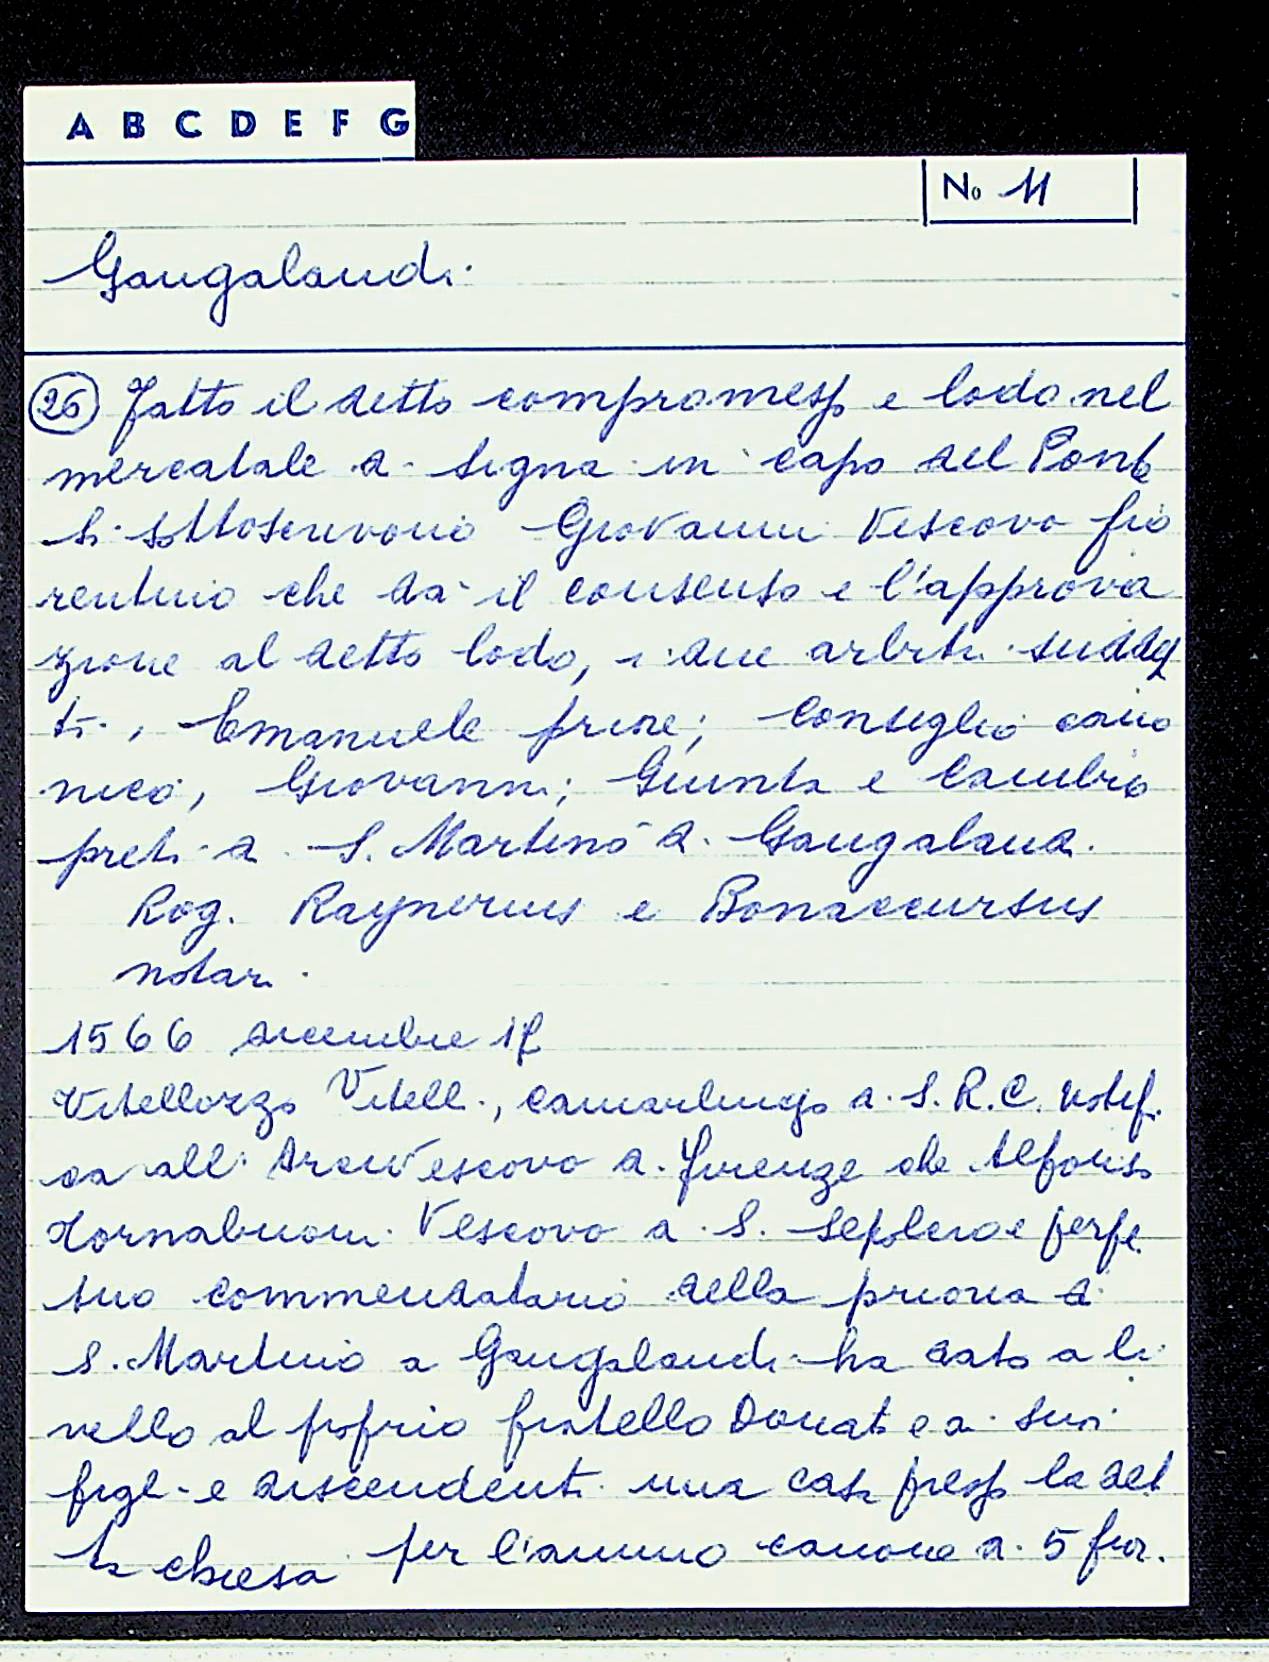 A B C D E F G
No 11
Gangalandi
26 Fatto il detto compromesso e lodo nel
mercatale di Signa in capo del Ponte
Si sottoscrivono Giovanni Vescovo fio
rentino che dà il consenso e l'approva
zione al detto lodo, i due arbitri suddet
ti, Emanuele priore; Consiglio cano
nico, Giovanni; Giunta e Cambio
preti di S. Martino di Gangalandi.
Rog. Raynerius e Bonaccursus
notari.
1566 dicembre 17
Vitellozzo Vitelli, camarlingo di S. R. C. notifi
ca all'Arcivescovo di Firenze che Alfonso
Tornabuoni Vescovo di S. Sepolcro e perpe
tuo commendatario della prioria di
S. Martino a Gangalandi ha dato a li
vello al proprio fratello Donato e ai suoi
figli e discendenti una casa presso la det
ta chiesa per l'annuo canone di 5 fior.